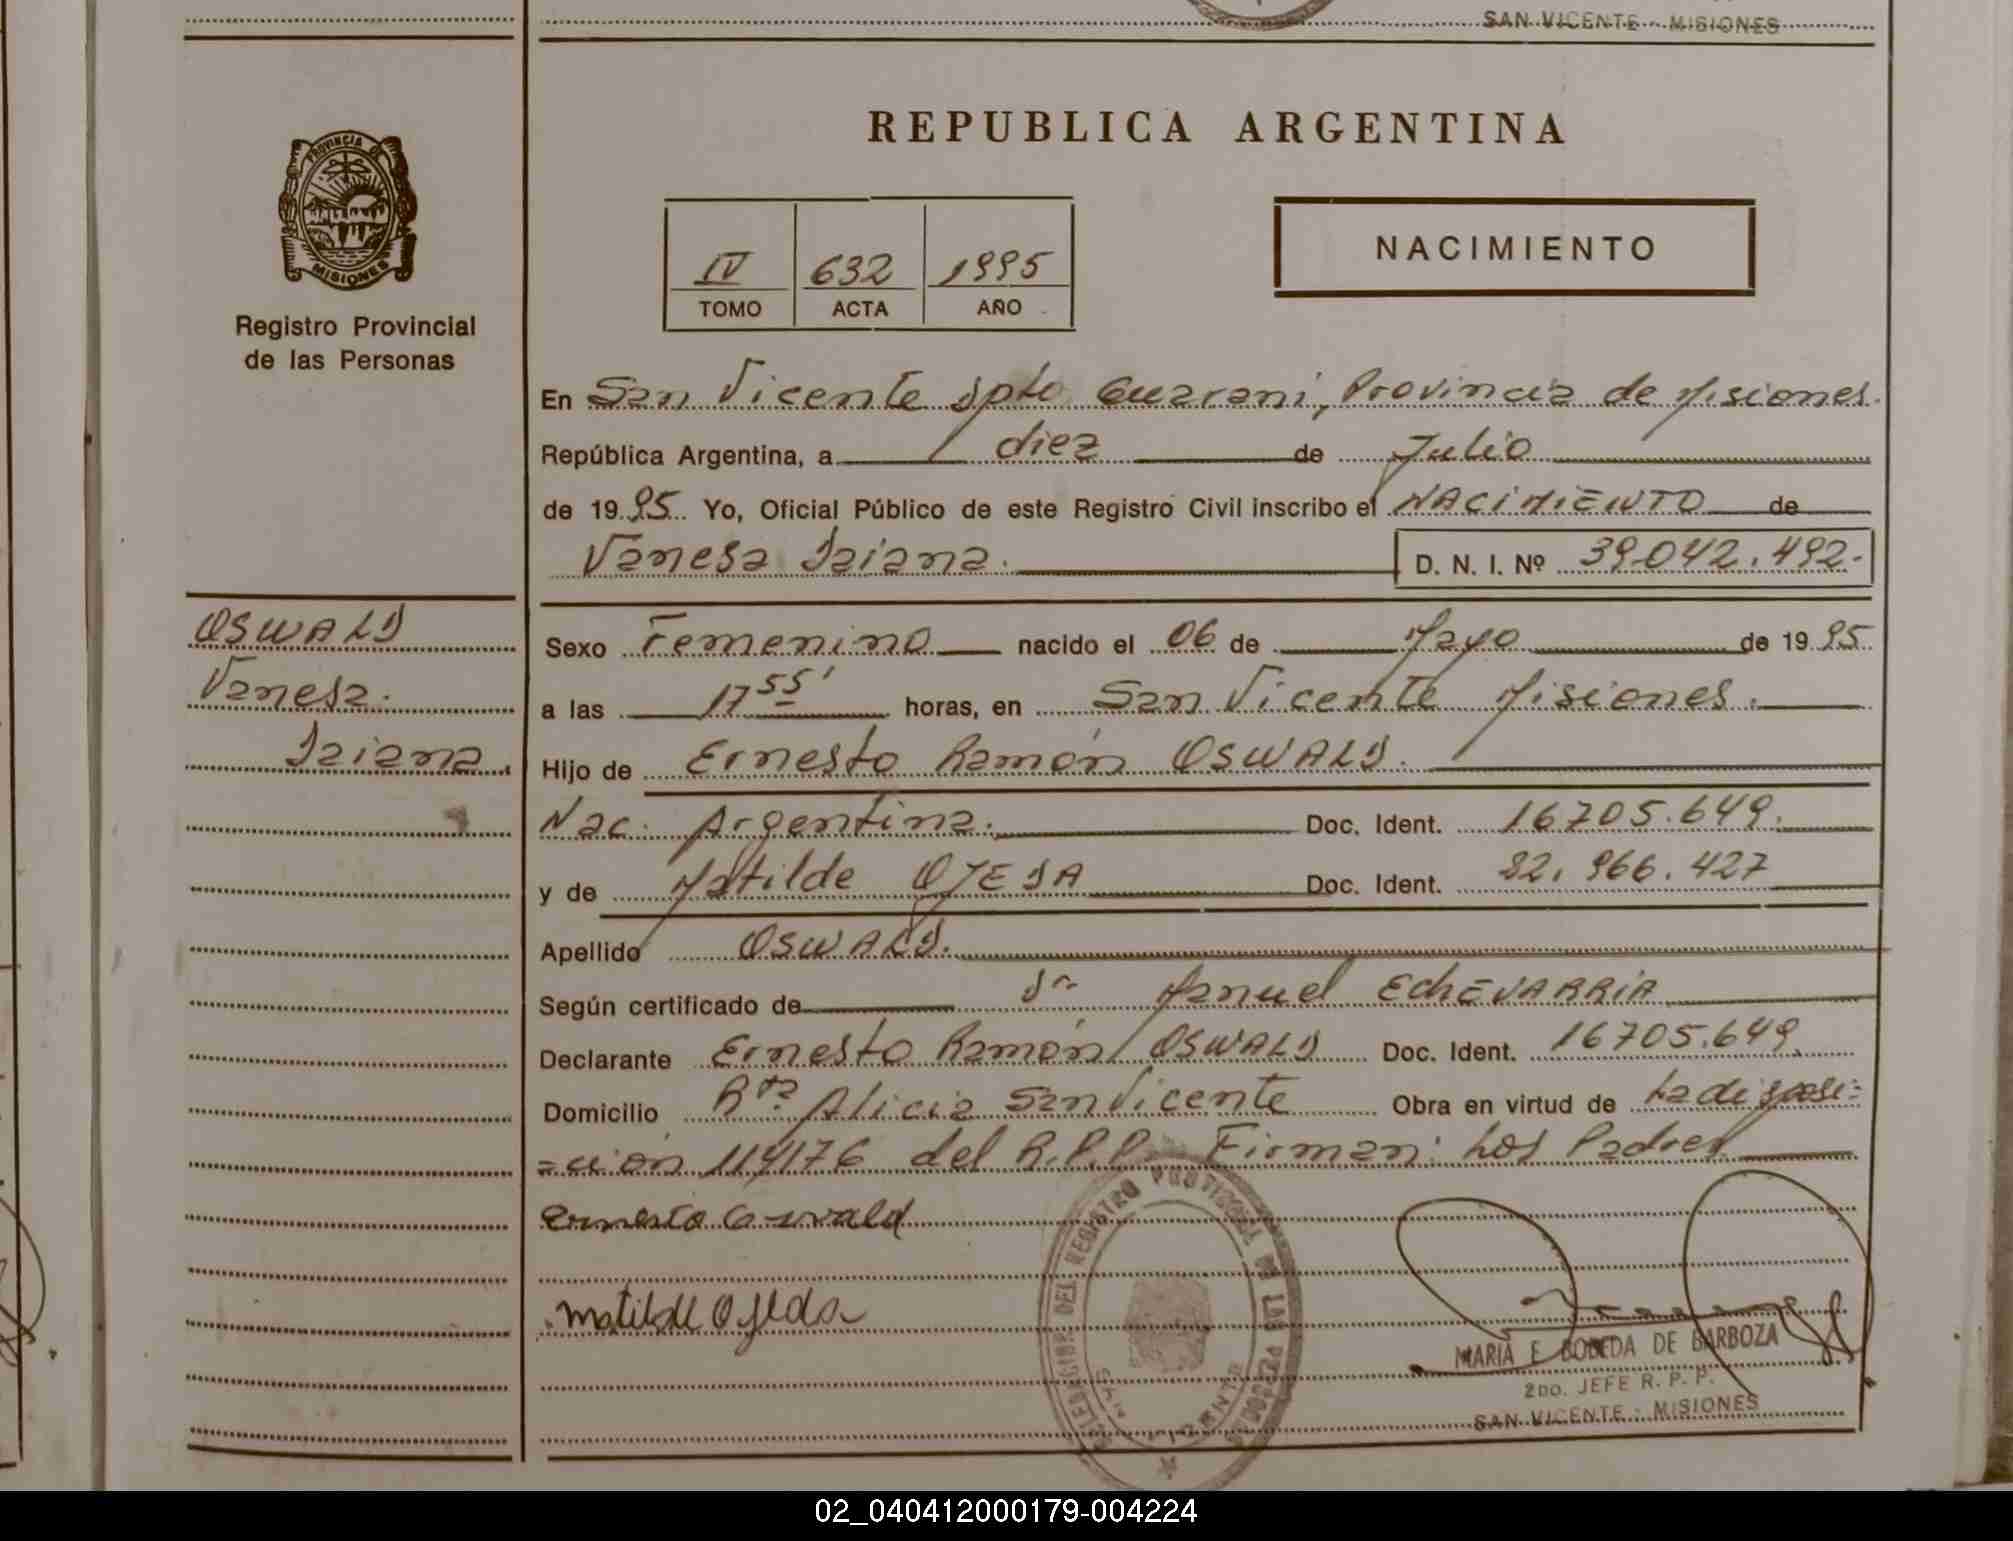 SAN VICENTE - MISIONES
PROVINCIA DE
MISIONES
Registro Provincial
de las Personas
OSWALD
Vanesa.
Daiana.
REPUBLICA ARGENTINA
IV 632 1995
TOMO ACTA AÑO
NACIMIENTO
En San Vicente Dpto Guarani, Provincia de Misiones.
República Argentina, a diez de Julio
de 1995 Yo, Oficial Público de este Registro Civil inscribo el NACIMIENTO de
Vanesa Daiana. D. N. I. Nº 39.042.492.-
Sexo Femenino nacido el 06 de Mayo de 1995
a las 17 55' horas, en San Vicente Misiones.
Hijo de Ernesto Ramón OSWALD.
Nac. Argentina. Doc. Ident. 16705.649.
y de Matilde OJEDA Doc. Ident. 22.966.427
Apellido OSWALD.
Según certificado de Dr Manuel EChEVARRIA
Declarante Ernesto Ramón OSWALD Doc. Ident. 16705.649.
Domicilio Rta. Alicia San Vicente Obra en virtud de La disposi=
=ción 114/76 del R.P.P. Firman: Los Padres
Ernesto Oswald
Matilde Ojeda
DEL REGISTRO PROVINCIAL DE LAS PERSONAS
SAN VICENTE
MARIA E BOBEDA DE BARBOZA
2DO. JEFE R. P. P.
SAN VICENTE - MISIONES
02_040412000179-004224